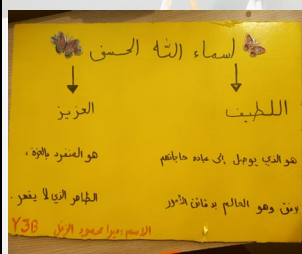 اسماء الله الحسنى
اللطيف
هو الذي يوصل إلى عباده حاجاتهم
برفق وهو العالم بدقائق الأمور
العزيز
هو المنفرد بالعزة ،
الظاهر الذي لا يقهر .
الاسم : ميرا محمود
Y3G